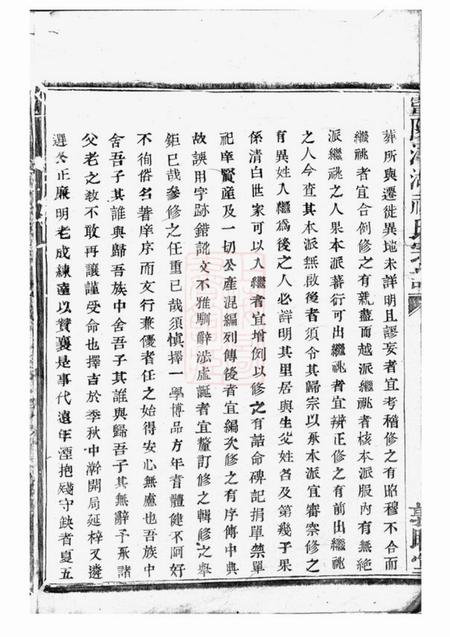 葬所與遷徙異地未詳明且謬妄者宜考稽修之有昭穆不合而
繼祧者宜合倒修之有就盡而越派繼祧者核本派服內有無絶
派繼祧之人果本派蕃衍可出繼祧者宜辨正修之有前出繼祧
之人今查其本派無啟後者須令其歸宗以承本派宜審察修之
有異姓入繼為後之人必詳明其里居與生父姓名及第幾子果
係清白世家可以入繼者宜增例以修之有誥命碑記捐單禁單
祀產賢產及一切公產混編列傳後者宜編次修之有序傳中典
故誤用字跡錯訛文不雅馴辭涉虛誕者宜釐訂修之輯修之舉
鉅已哉參修之任重已哉須慎擇一學博品方年青體健不阿好
不徇俗名著庠序而文行兼優者任之始得安心無慮也吾族中
舍吾子其誰與歸吾族中舍吾子其誰與歸吾子其無辭予承諸
父老之教不敢再讓謹受命也擇吉於季秋中澣開局延梓又遴
選公正廉明老成練達以贊襄是事代遠年湮抱殘守缺者夏五